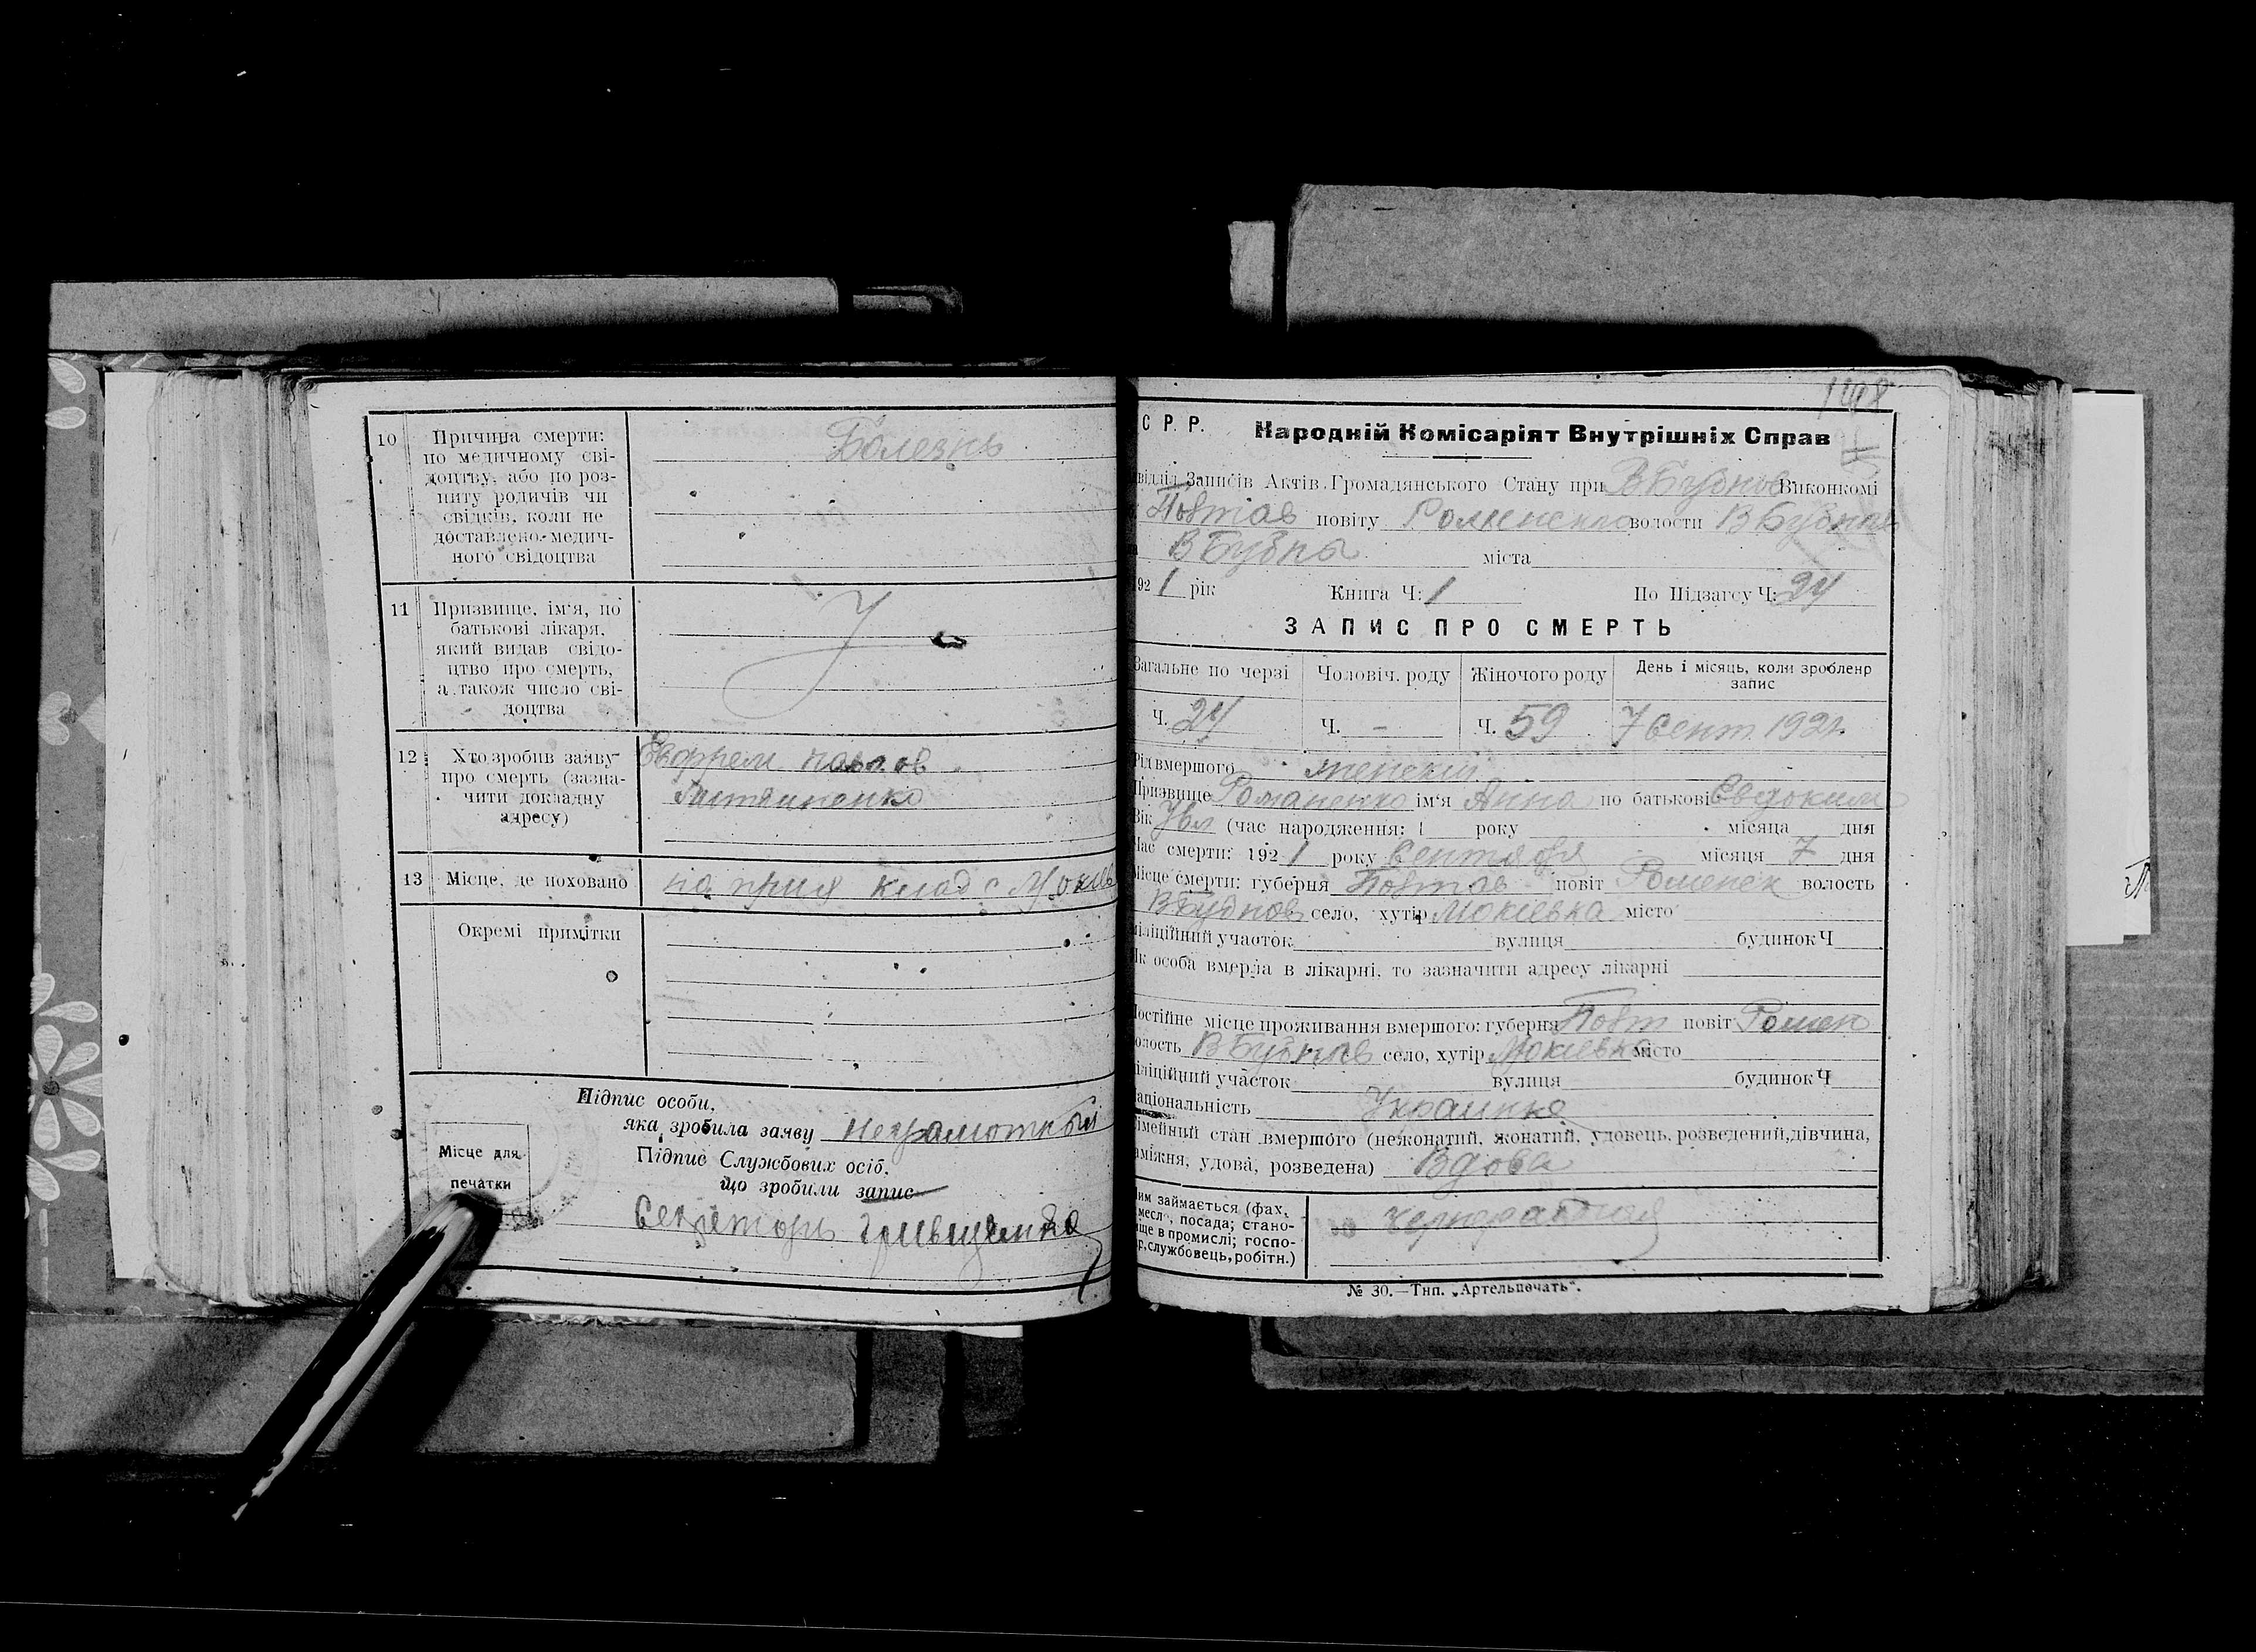 10 Причина смерти: Болезнь
по медичному сві-
доцтву, або по роз-
питу родичів чи
свідків, коли не
доставлено медич-
ного свідоцтва
11 Призвище, ім'я, по
батькові лікаря,
який видав свідо-
цтво про смерть,
а також число сві-
доцтва
12 Хто зробив заяву
про смерть (зазна-
чити докладну
адресу)
13 Місце, де поховано на клад с
Окремі примітки
Підпис особи,
яка зробила заяву неграмотный
Підпис Службових осіб,
що зробили запис
Місце для
печатки
Секретарь
С Р. Р. Народній Комісаріят Внутрішніх Справ
Записів Актів Громадянського Стану при В Бубнов Виконкомі
Полтав повіту волости В Бубнов
В Бубны міста
1921 рік Книга Ч: 1 По Підзагсу Ч:
ЗАПИС ПРО СМЕРТЬ
Загальне по черзі Чоловіч. роду Жіночого роду День і місяць, коли зроблено
запис
Ч. Ч. - Ч. 59 7 Сент. 1921.
Рід вмершого женский
Призвище Романенко ім'я Анна по батькові Евдоким
Вік (час народження: 1 року місяца дня
Час смерти: 1921 року Сентября місяця 7 дня
Місце смерти: губерня Полтав повіт Роменск волость
В Бубнов село, хутір Мокіевка місто
міліційний участок вулиця будинок Ч
Як особа вмерла в лікарні, то зазначити адресу лікарні
Постійне місце проживання вмершого: губерня Полт повіт Ромен
волость В Бубнов село, хутір Мокіевка місто
міліційний участок вулиця будинок Ч
аціональність Украинка
імейний стан вмершого (нежонатий, жонатий, удовець, розведений, дівчина,
аміжня, удова, розведена) Вдова
им займається (фах, чернорабочая
месло, посада; стано-
ще в промислі; госпо-
р, службовець, робітн.)
№ 30.—Тип. „Артельпечать".